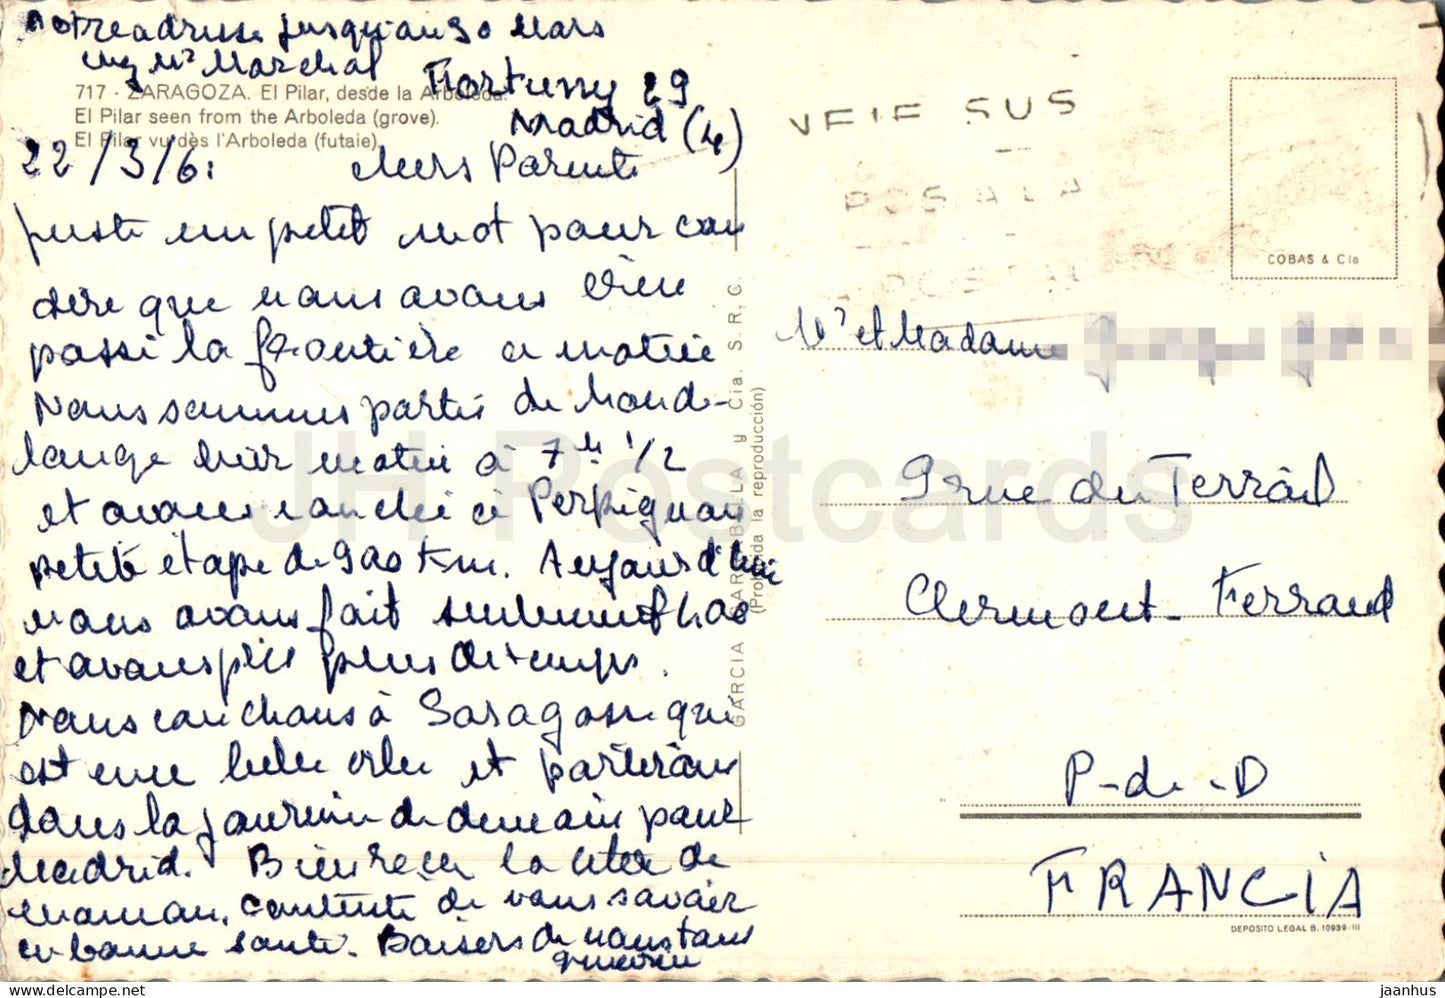 notre adresse jusqu'au 30 Mars
chez Mr Marchal Fortuny 29
Madrid (4)
717 - ZARAGOZA. El Pilar, desde la Arboleda.
El Pilar seen from the Arboleda (grove).
El Pilar vu dès l'Arboleda (futaie).
22/3/61 chers Parents
juste un petit mot pour vous
dire que nous avons bien
passé la frontière ce matin
Nous sommes partis de
hier matin à 7h 1/2
et avons couché à Perpignan
petite étape de 900 km. Aujourd'hui
nous avons fait seulement 400
et avons pris plus de temps.
Nous couchons à Saragosse qui
est une belle ville et partirons
dans la journée de demain pour
Madrid. Bien reçu la lettre de
maman, contente de vous savoir
en bonne santé. Baisers de nous tous
GARCIA GARRABELLA y Cia. S.R.C.
(Prohibida la reproducción)
COBAS & Cia
Mr et Madame
9 rue du Terrail
Clermont-Ferrand
P-de-D
FRANCIA
DEPOSITO LEGAL B. 10939-III
JH Postcards
www.delcampe.net
jaanhus